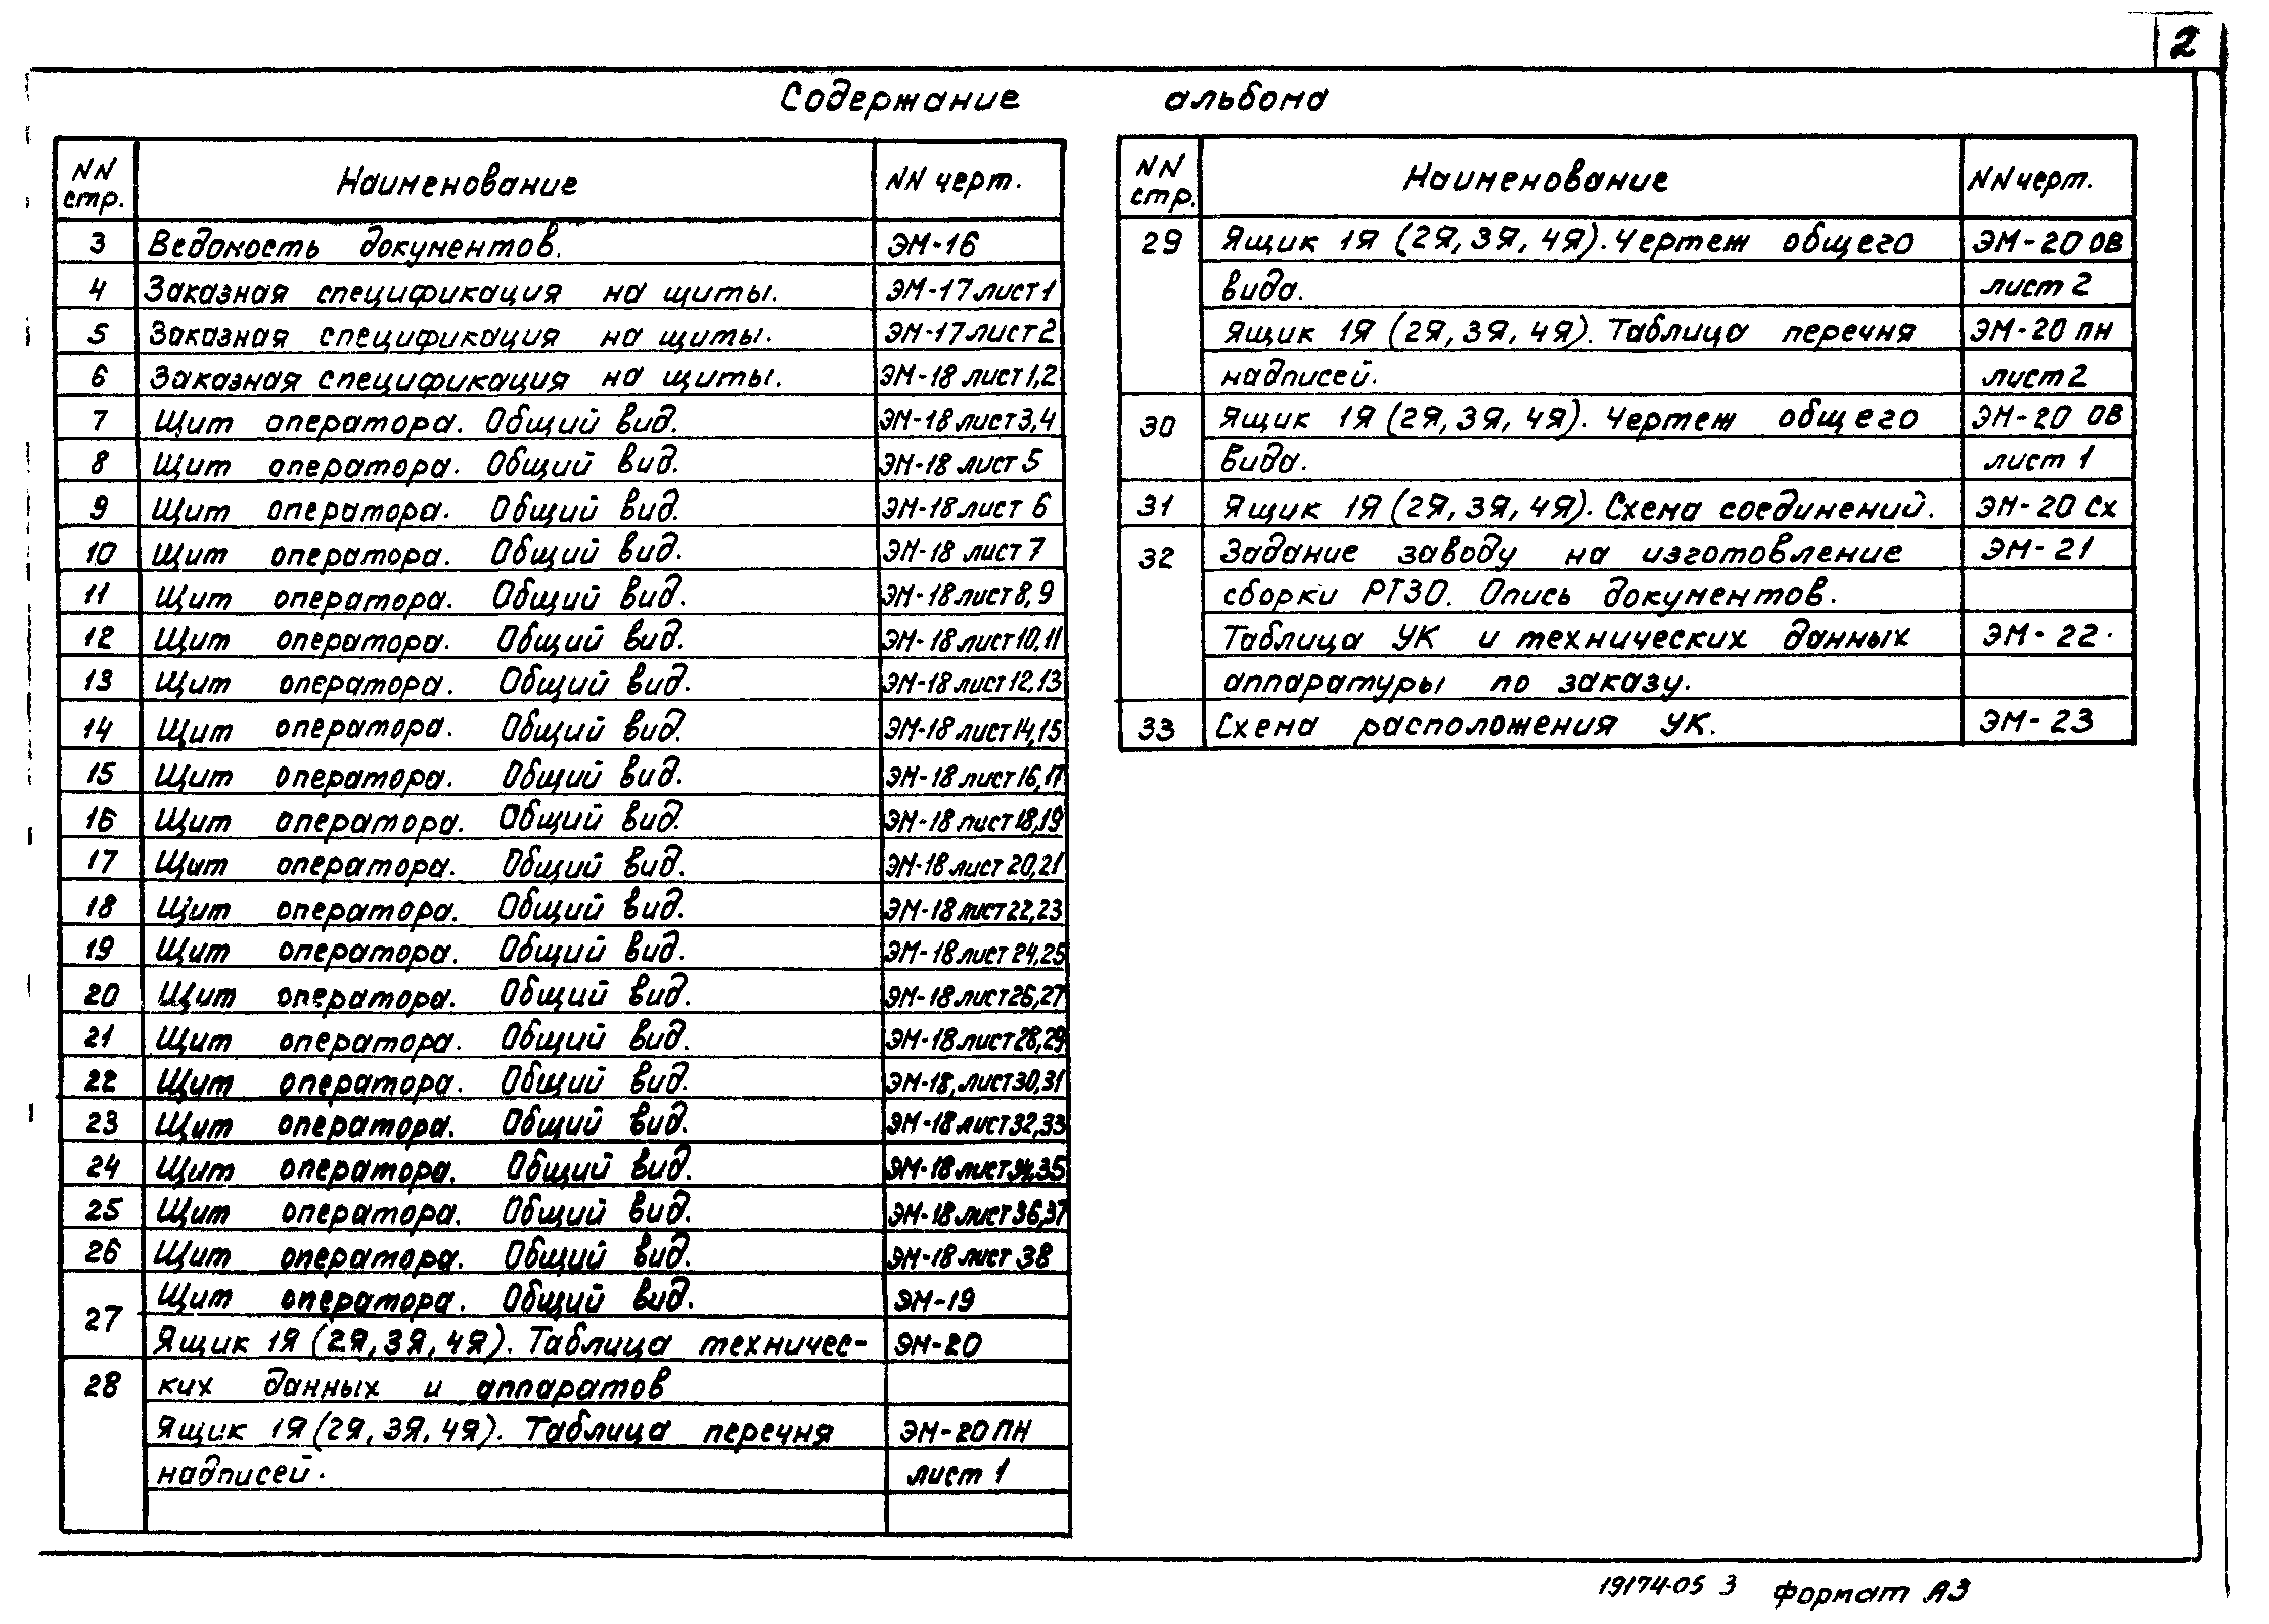 2
Содержание альбома
NN стр. Наименование NN черт.
3 Ведомость документов. ЭМ-16
4 Заказная спецификация на щиты. ЭМ-17 лист 1
5 Заказная спецификация на щиты. ЭМ-17 лист 2
6 Заказная спецификация на щиты. ЭМ-18 лист 1,2
7 Щит оператора. Общий вид. ЭМ-18 лист 3,4
8 Щит оператора. Общий вид. ЭМ-18 лист 5
9 Щит оператора. Общий вид. ЭМ-18 лист 6
10 Щит оператора. Общий вид. ЭМ-18 лист 7
11 Щит оператора. Общий вид. ЭМ-18 лист 8,9
12 Щит оператора. Общий вид. ЭМ-18 лист 10,11
13 Щит оператора. Общий вид. ЭМ-18 лист 12,13
14 Щит оператора. Общий вид. ЭМ-18 лист 14,15
15 Щит оператора. Общий вид. ЭМ-18 лист 16,17
16 Щит оператора. Общий вид. ЭМ-18 лист 18,19
17 Щит оператора. Общий вид. ЭМ-18 лист 20,21
18 Щит оператора. Общий вид. ЭМ-18 лист 22,23
19 Щит оператора. Общий вид. ЭМ-18 лист 24,25
20 Щит оператора. Общий вид. ЭМ-18 лист 26,27
21 Щит оператора. Общий вид. ЭМ-18 лист 28,29
22 Щит оператора. Общий вид. ЭМ-18, лист 30,31
23 Щит оператора. Общий вид. ЭМ-18 лист 32,33
24 Щит оператора. Общий вид. ЭМ-18 лист 34,35
25 Щит оператора. Общий вид. ЭМ-18 лист 36,37
26 Щит оператора. Общий вид. ЭМ-18 лист 38
27 Щит оператора. Общий вид. ЭМ-19
Ящик 1Я (2Я, 3Я, 4Я). Таблица техничес- ЭМ-20
28 ких данных и аппаратов
Ящик 1Я (2Я, 3Я, 4Я). Таблица перечня ЭМ-20 ПН
надписей. лист 1
NN стр. Наименование NN черт.
29 Ящик 1Я (2Я, 3Я, 4Я). Чертеж общего ЭМ-20 ОВ
вида. лист 2
Ящик 1Я (2Я, 3Я, 4Я). Таблица перечня ЭМ-20 ПН
надписей. лист 2
30 Ящик 1Я (2Я, 3Я, 4Я). Чертеж общего ЭМ-20 ОВ
вида. лист 1
31 Ящик 1Я (2Я, 3Я, 4Я). Схема соединений. ЭМ-20 Сх
32 Задание заводу на изготовление ЭМ-21
сборки РТЗО. Опись документов.
Таблица УК и технических данных ЭМ-22.
аппаратуры по заказу.
33 Схема расположения УК. ЭМ-23
19174-05 3 формат А3